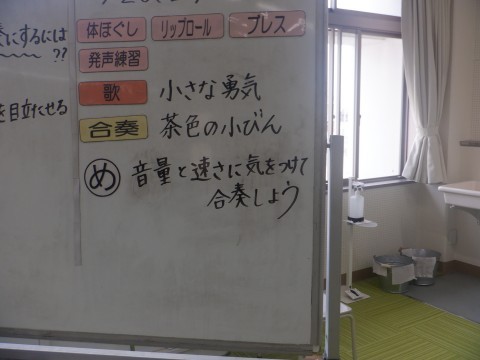 奏にするには
??
を目立たせる
体ほぐし リップロール ブレス
発声練習
歌 小さな勇気
合奏 茶色の小びん
め 音量と速さに気をつけて
合奏しよう